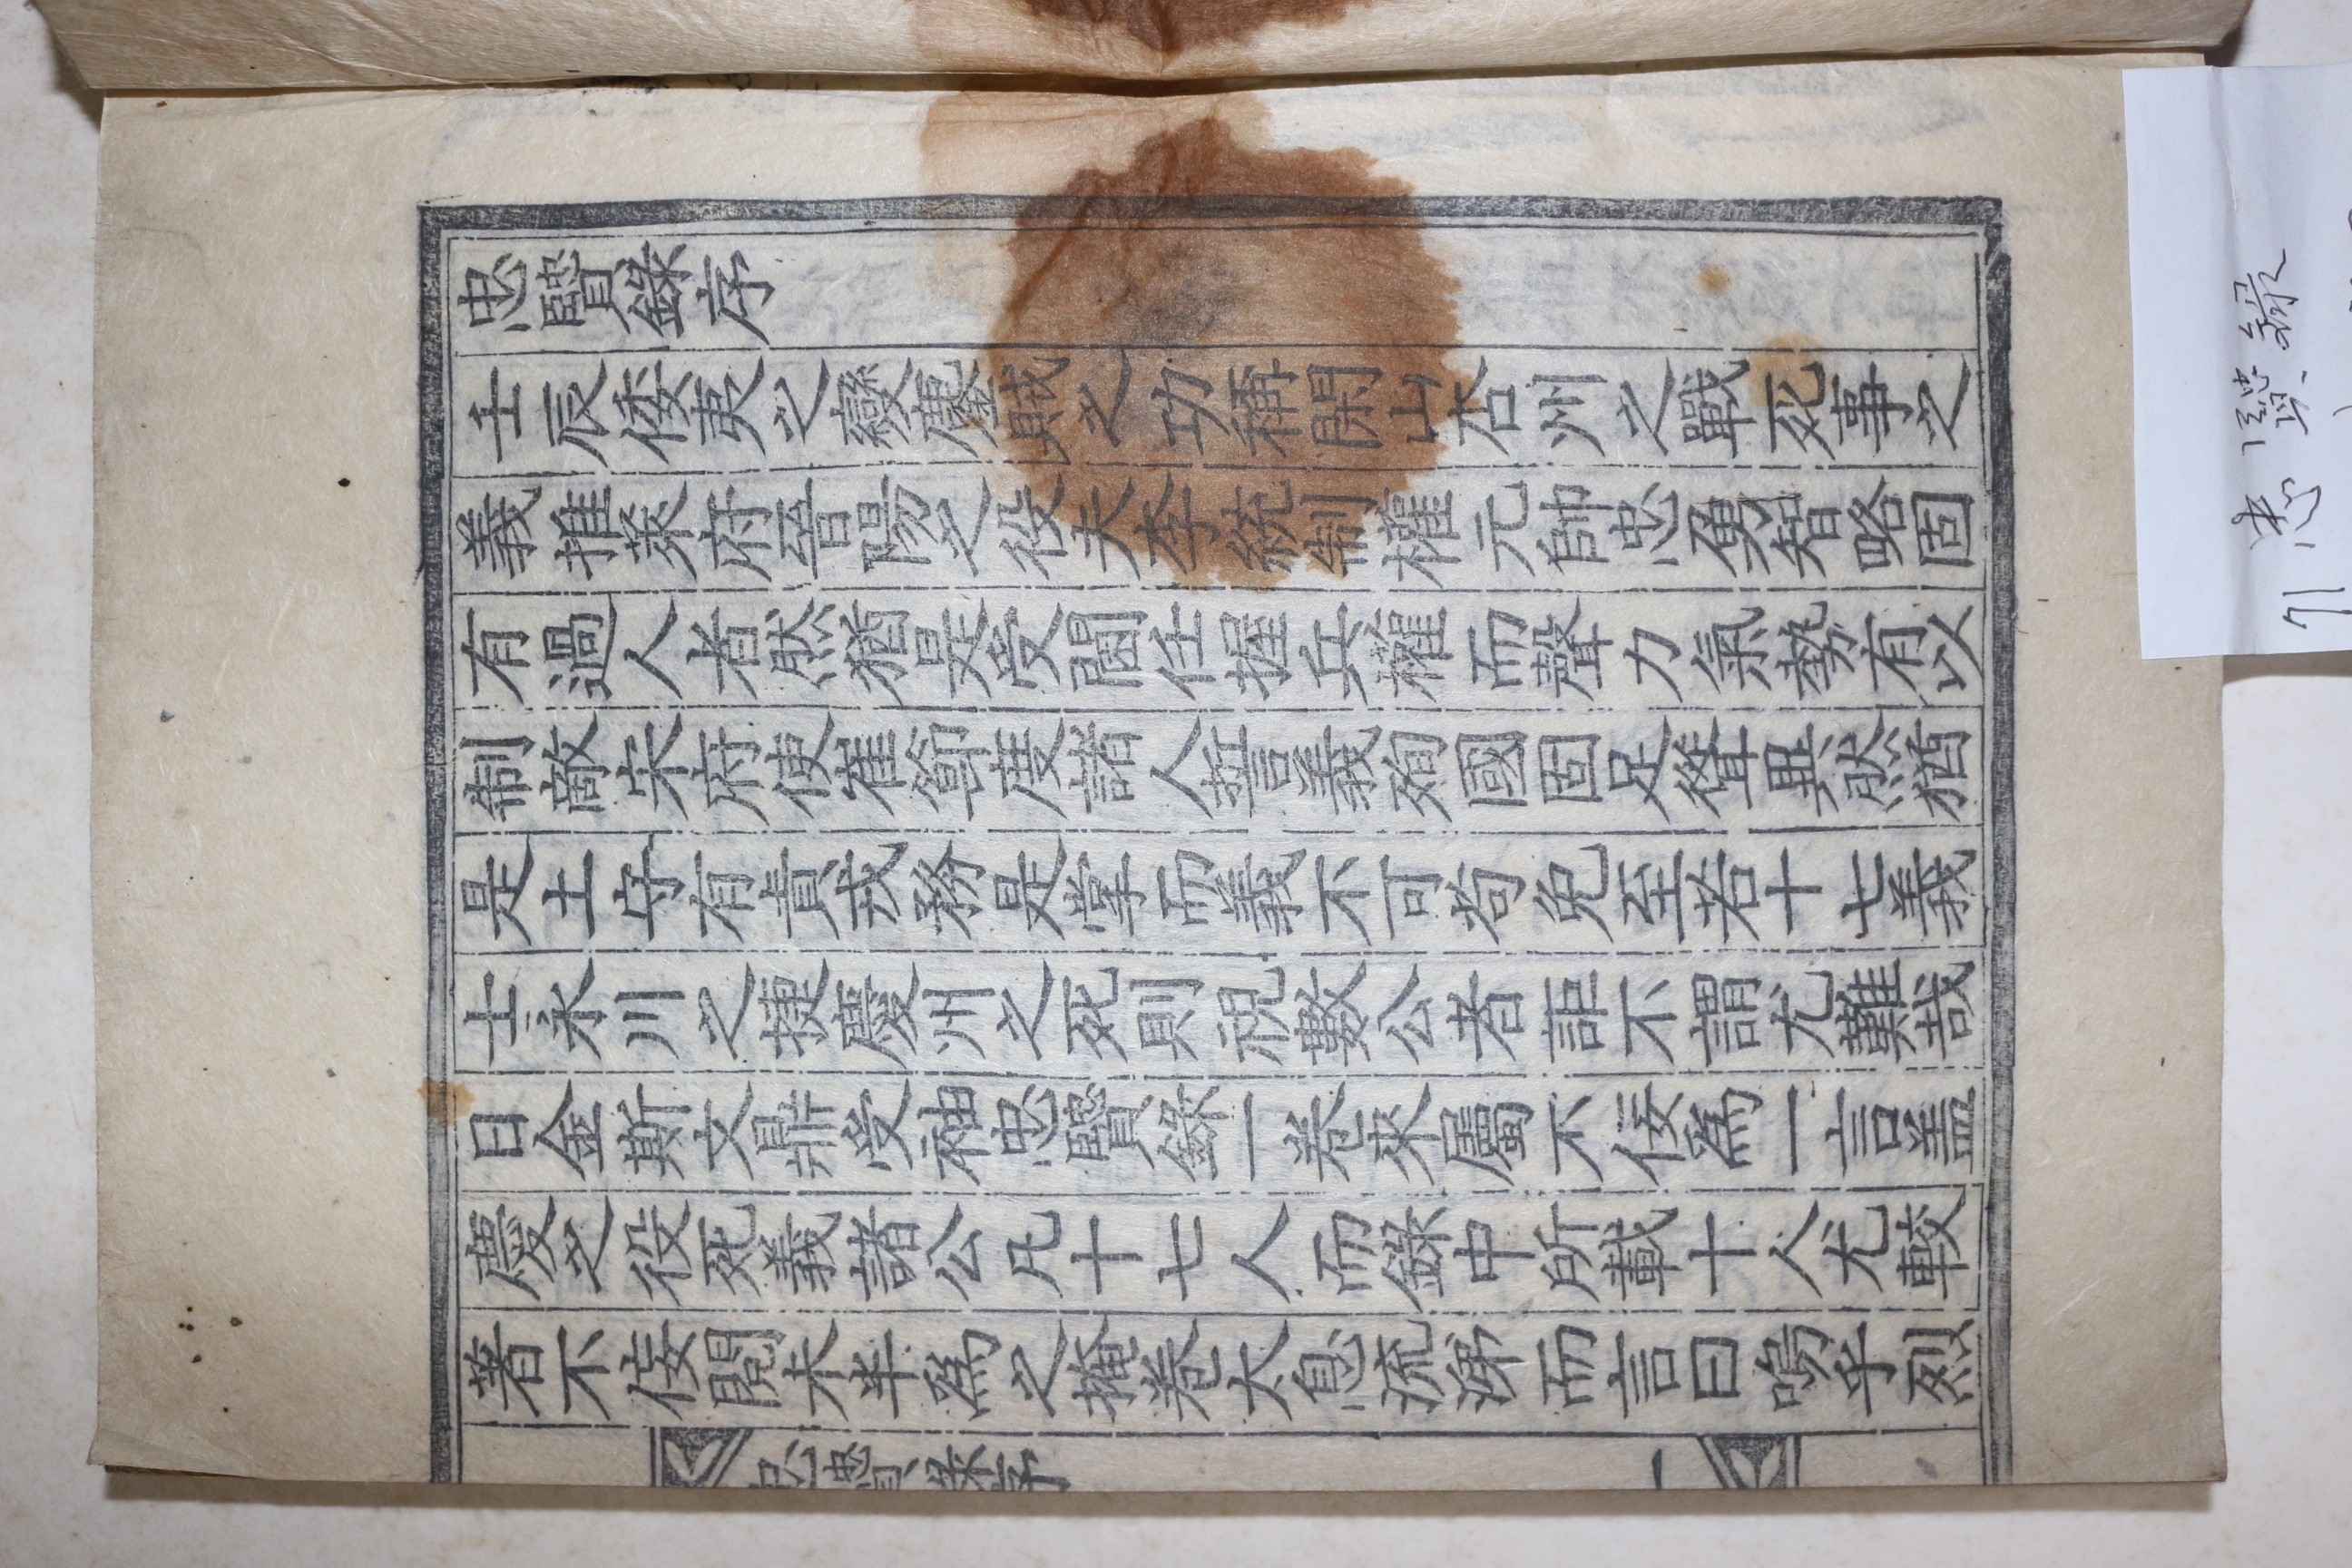 忠贒錄序
壬辰倭夷之變鏖賊之功稱閑山杏州之戰死事之
義推萊府晉陽之役夫李統制權元帥忠勇智略固
有過人者然猶是受閫任握兵權而聲力氣勢有以
制敵宋府使崔節度諸人誓義殉國固足聳異然猶
是土守有責戎務是掌而義不可苟免至若十七義
士永川之捷慶州之死則視數公者詎不謂尤難哉
日金斯文鼎受袖忠贒錄一卷來屬不侫爲一言盖
慶之役死義諸公凡十七人而錄中所載十人尤較
著不侫閱未半爲之掩卷太息流涕而言曰嗚乎烈
忠贒錄序
一
忠贒錄